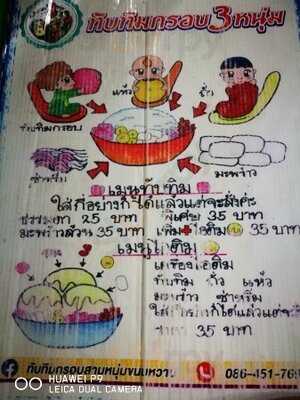 ทับทิมกรอบ 3 หนุ่ม
แห้ว
ถั่ว
ทับทิมกรอบ
ซ่าหริ่ม
มะพร้าว
เมนูทับทิม
ใส่กี่อย่างก็ได้แล้วแต่จะสั่งค่ะ
ธรรมดา 25 บาท พิเศษ 35 บาท
มะพร้าวล้วน 35 บาท เพิ่มไอติม 35 บาท
เมนูไอติม
เครื่องไอติม
ทับทิม ถั่ว แห้ว
มะพร้าว ซ่าหริ่ม
ราคา 35 บาท
ทับทิมกรอบสามหนุ่มขนมหวาน
086-451-769
HUAWEI P9
LEICA DUAL CAMERA